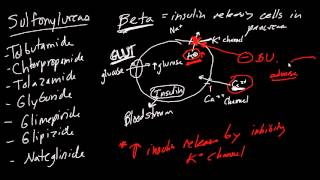 Sulfonylureas
- Tolbutamide
- Chlorpropamide
- Tolazamide
- Glyburide
- Glimepiride
- Glipizide
- Nateglinide
Beta = insulin releasing cells in pancreas
Na+
K+ channel
GLUT
glucose
↑ glucose
- SU.
Insulin
Ca++
Ca++ channel
Bloodstream
* ↑ insulin release by inhibiting
K+ channel